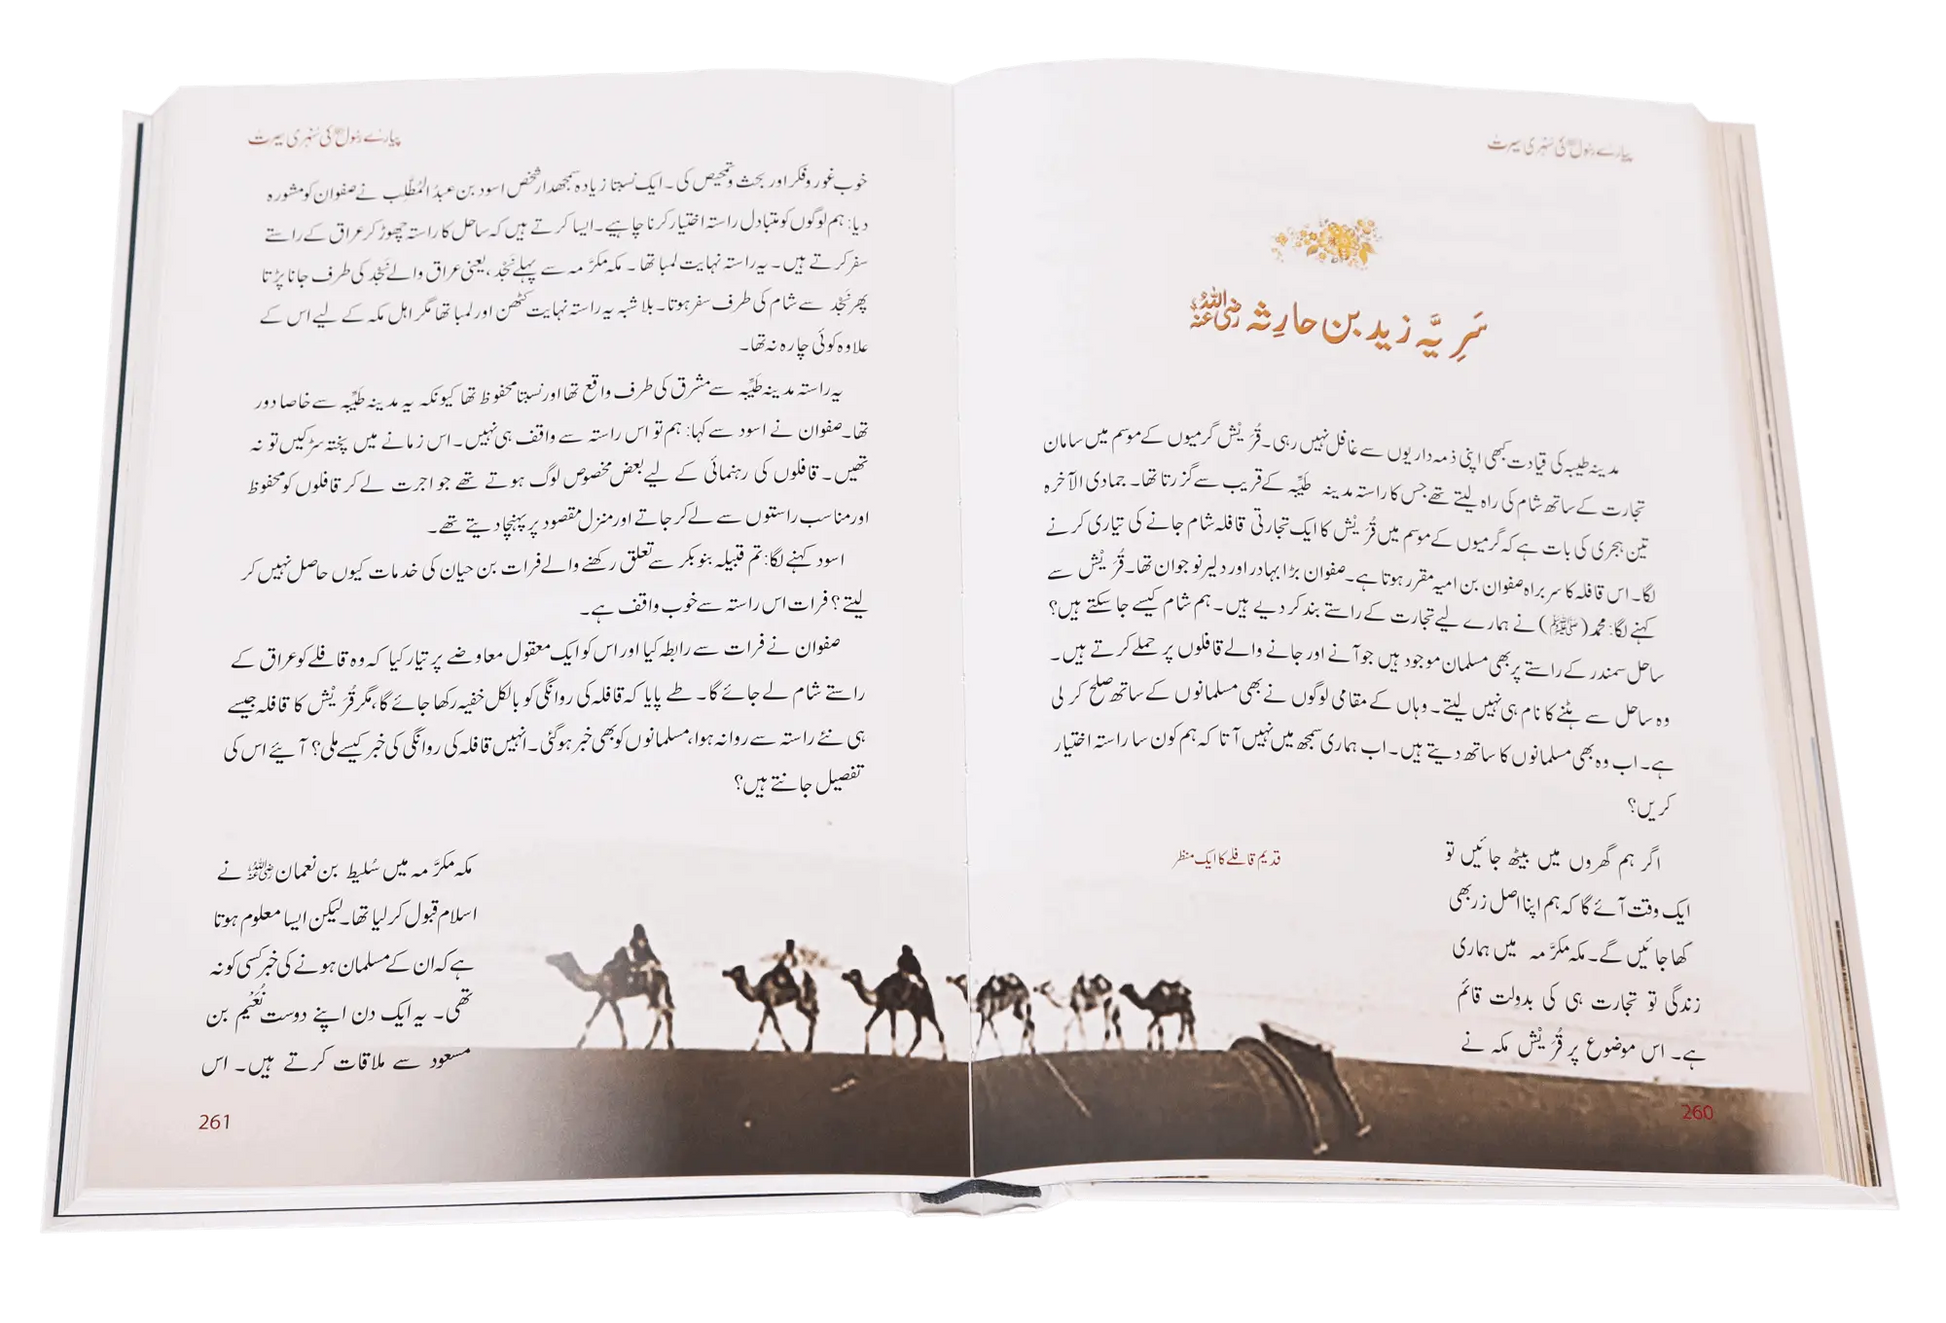 پیارے رسول ﷺ کی سنہری سیرت
سَرِیَّہ زید بن حارِثہ رضی اللہ عنہ
مدینہ طیبہ کی قیادت کبھی اپنی ذمہ داریوں سے غافل نہیں رہی۔ قُرَیْش گرمیوں کے موسم میں سامان
تجارت کے ساتھ شام کی راہ لیتے تھے جس کا راستہ مدینہ طَیِّبہ کے قریب سے گزرتا تھا۔ جمادی الآخرہ
تین ہجری کی بات ہے کہ گرمیوں کے موسم میں قُرَیْش کا ایک تجارتی قافلہ شام جانے کی تیاری کرنے
لگا۔ اس قافلہ کا سربراہ صفوان بن امیہ مقرر ہوتا ہے۔ صفوان بڑا بہادر اور دلیر نوجوان تھا۔ قُرَیْش سے
کہنے لگا: محمد (ﷺ) نے ہمارے لیے تجارت کے راستے بند کر دیے ہیں۔ ہم شام کیسے جا سکتے ہیں؟
ساحل سمندر کے راستے پر بھی مسلمان موجود ہیں جو آنے اور جانے والے قافلوں پر حملے کرتے ہیں۔
وہ ساحل سے ہٹنے کا نام ہی نہیں لیتے۔ وہاں کے مقامی لوگوں نے بھی مسلمانوں کے ساتھ صلح کر لی
ہے۔ اب وہ بھی مسلمانوں کا ساتھ دیتے ہیں۔ اب ہماری سمجھ میں نہیں آتا کہ ہم کون سا راستہ اختیار
کریں؟
اگر ہم گھروں میں بیٹھ جائیں تو
ایک وقت آئے گا کہ ہم اپنا اصل زر بھی
کھا جائیں گے۔ مکہ مکرَّمہ میں ہماری
زندگی تو تجارت ہی کی بدولت قائم
ہے۔ اس موضوع پر قُرَیْش مکہ نے
قدیم قافلے کا ایک منظر
260
پیارے رسول ﷺ کی سنہری سیرت
خوب غور و فکر اور بحث و تمحیص کی۔ ایک نسبتا زیادہ سمجھدار شخص اسود بن عبدُ المُطَّلِب نے صفوان کو مشورہ
دیا: ہم لوگوں کو متبادل راستہ اختیار کرنا چاہیے۔ ایسا کرتے ہیں کہ ساحل کا راستہ چھوڑ کر عراق کے راستے
سفر کرتے ہیں۔ یہ راستہ نہایت لمبا تھا۔ مکہ مکرَّمہ سے پہلے نَجْد، یعنی عراق والے نَجْد کی طرف جانا پڑتا
پھر نَجْد سے شام کی طرف سفر ہوتا۔ بلاشبہ یہ راستہ نہایت کٹھن اور لمبا تھا مگر اہل مکہ کے لیے اس کے
علاوہ کوئی چارہ نہ تھا۔
یہ راستہ مدینہ طَیِّبہ سے مشرق کی طرف واقع تھا اور نسبتا محفوظ تھا کیونکہ یہ مدینہ طَیِّبہ سے خاصا دور
تھا۔ صفوان نے اسود سے کہا: ہم تو اس راستہ سے واقف ہی نہیں۔ اس زمانے میں پختہ سڑکیں تو نہ
تھیں۔ قافلوں کی رہنمائی کے لیے بعض مخصوص لوگ ہوتے تھے جو اجرت لے کر قافلوں کو محفوظ
اور مناسب راستوں سے لے کر جاتے اور منزل مقصود پر پہنچا دیتے تھے۔
اسود کہنے لگا: تم قبیلہ بنو بکر سے تعلق رکھنے والے فرات بن حیان کی خدمات کیوں حاصل نہیں کر
لیتے؟ فرات اس راستہ سے خوب واقف ہے۔
صفوان نے فرات سے رابطہ کیا اور اس کو ایک معقول معاوضے پر تیار کیا کہ وہ قافلے کو عراق کے
راستے شام لے جائے گا۔ طے پایا کہ قافلہ کی روانگی کو بالکل خفیہ رکھا جائے گا، مگر قُرَیْش کا قافلہ جیسے
ہی نئے راستہ سے روانہ ہوا، مسلمانوں کو بھی خبر ہو گئی۔ انہیں قافلہ کی روانگی کی خبر کیسے ملی؟ آئیے اس کی
تفصیل جانتے ہیں؟
مکہ مکرَّمہ میں سُلیط بن نعمان رضی اللہ عنہ نے
اسلام قبول کر لیا تھا۔ لیکن ایسا معلوم ہوتا
ہے کہ ان کے مسلمان ہونے کی خبر کسی کو نہ
تھی۔ یہ ایک دن اپنے دوست نُعَیْم بن
مسعود سے ملاقات کرتے ہیں۔ اس
261